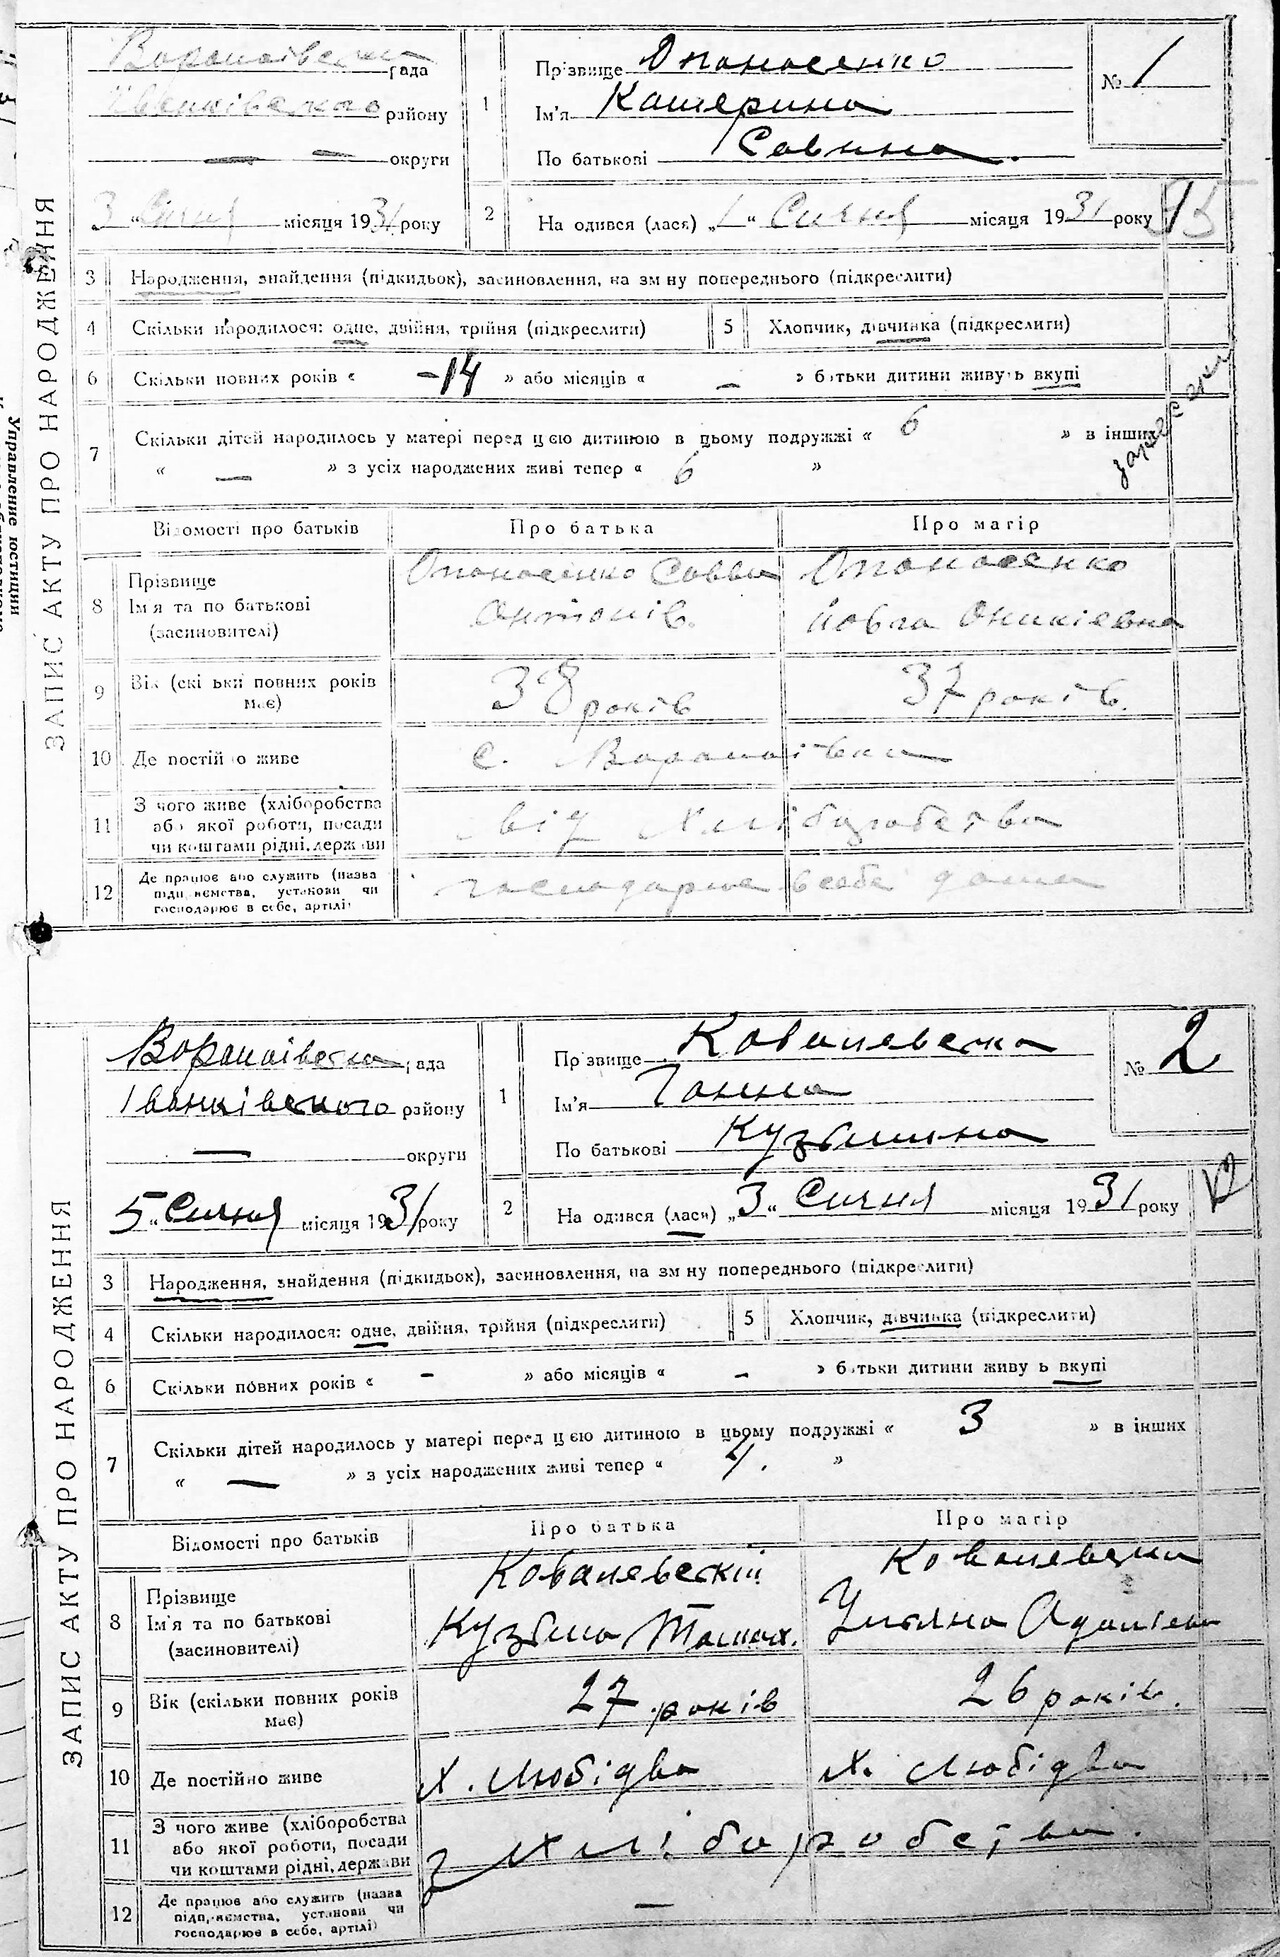 ЗАПИС АКТУ ПРО НАРОДЖЕННЯ
Воропаївська рада
Іванківського району
— — округи
3 „ Січня місяця 1931 року
1 Прізвище Опанасенко
Ім'я Катерина
По батькові Савина.
№ 1
2 На одився (лася) „ 1 “ Січня місяця 1931 року
3 Народження, знайдення (підкидьок), засиновлення, на зм ну попереднього (підкреслити)
4 Скільки народилося: одне, двійня, трійня (підкреслити)
5 Хлопчик, дівчинка (підкреслити)
6 Скільки повних років « -14 » або місяців « — » батьки дитини живуть вкупі
7 Скільки дітей народилось у матері перед цією дитиною в цьому подружжі « 6 » в інших
« — » з усіх народжених живі тепер « 6 »
Відомості про батьків Про батька Про матір
8 Прізвище
Ім'я та по батькові
(засиновителі)
Опанасенко Савва
Антонів.
Опанасенко
Йовга Оникіевна
9 Вік (скі ьки повних років має) 38 років 37 років.
10 Де постій о живе с. Воропаївка
11 З чого живе (хліборобства
або якої роботи, посади
чи коштами рідні, держави
від хліборобства
12 Де працює або служить (назва
підп иємства, установи чи
господарює в себе, артілі)
господарює в себе дома
Управление юстиции
ЗАПИС АКТУ ПРО НАРОДЖЕННЯ
Воропаївська рада
Іванківського району
— округи
5 „ Січня місяця 1931 року
1 Пр звище Ковалевська
Ім'я Ганна
По батькові Кузьминна
№ 2
2 На одився (лася) „ 3 “ Січня місяця 1931 року
3 Народження, знайдення (підкидьок), засиновлення, на зм ну попереднього (підкреслити)
4 Скільки народилося: одне, двійня, трійня (підкреслити)
5 Хлопчик, дівчинка (підкреслити)
6 Скільки повних років « - » або місяців « — » батьки дитини живу ь вкупі
7 Скільки дітей народилось у матері перед цією дитиною в цьому подружжі « 3 » в інших
« — » з усіх народжених живі тепер « 4. »
Відомості про батьків Про батька Про матір
8 Прізвище
Ім'я та по батькові
(засиновителі)
Ковалевській
Кузьма
Ковалевська
Уляна
9 Вік (скільки повних років має) 27 років 26 років.
10 Де постійно живе х. Любідва х. Любідва
11 З чого живе (хліборобства
або якої роботи, посади
чи коштами рідні, держави
з хліборобства.
12 Де працює або служить (назва
підп иємства, установи чи
господарює в себе, артілі)
—